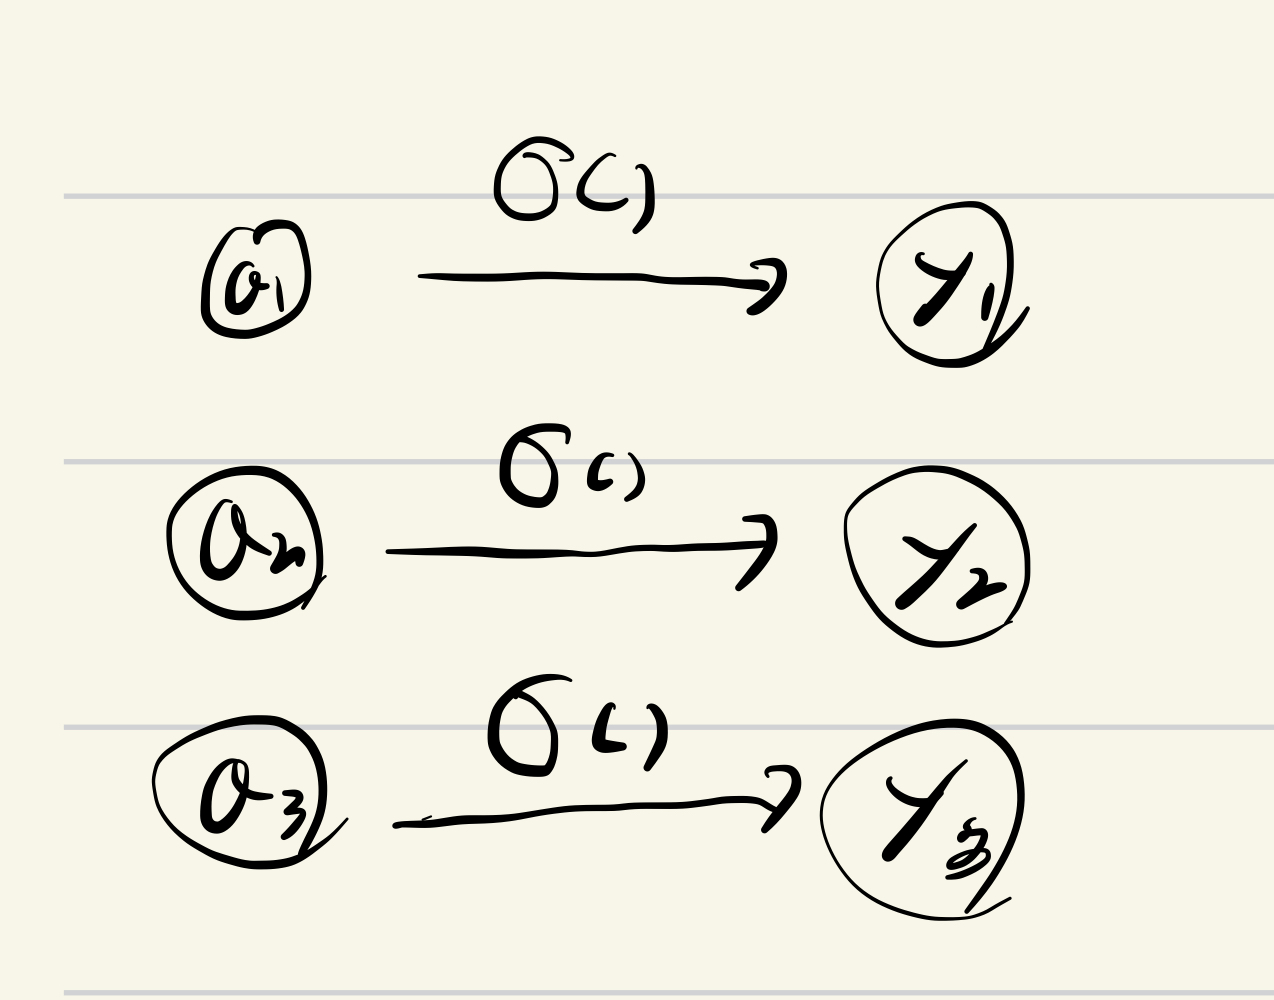 a₁ σ() y₁
a₂ σ() y₂
a₃ σ() y₃